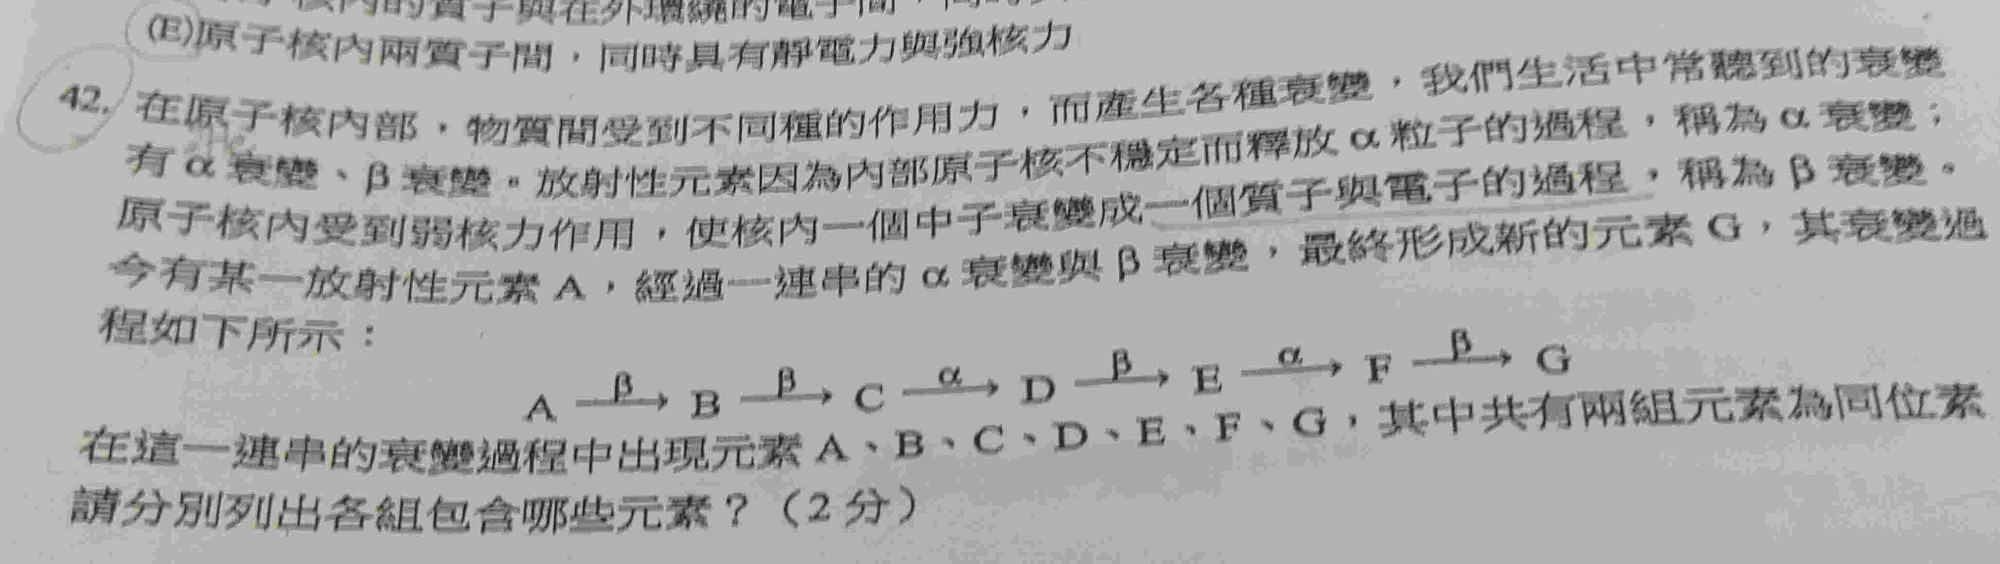 核內的質子與在外環繞的電子間，同時
(E)原子核內兩質子間，同時具有靜電力與強核力
42. 在原子核內部，物質間受到不同種的作用力，而產生各種衰變，我們生活中常聽到的衰變
有 α 衰變、β 衰變。放射性元素因為內部原子核不穩定而釋放 α 粒子的過程，稱為 α 衰變；
原子核內受到弱核力作用，使核內一個中子衰變成一個質子與電子的過程，稱為 β 衰變。
今有某一放射性元素 A，經過一連串的 α 衰變與 β 衰變，最終形成新的元素 G，其衰變過
程如下所示：
A β→ B β→ C α→ D β→ E α→ F β→ G
在這一連串的衰變過程中出現元素 A、B、C、D、E、F、G，其中共有兩組元素為同位素
請分別列出各組包含哪些元素？（2 分）